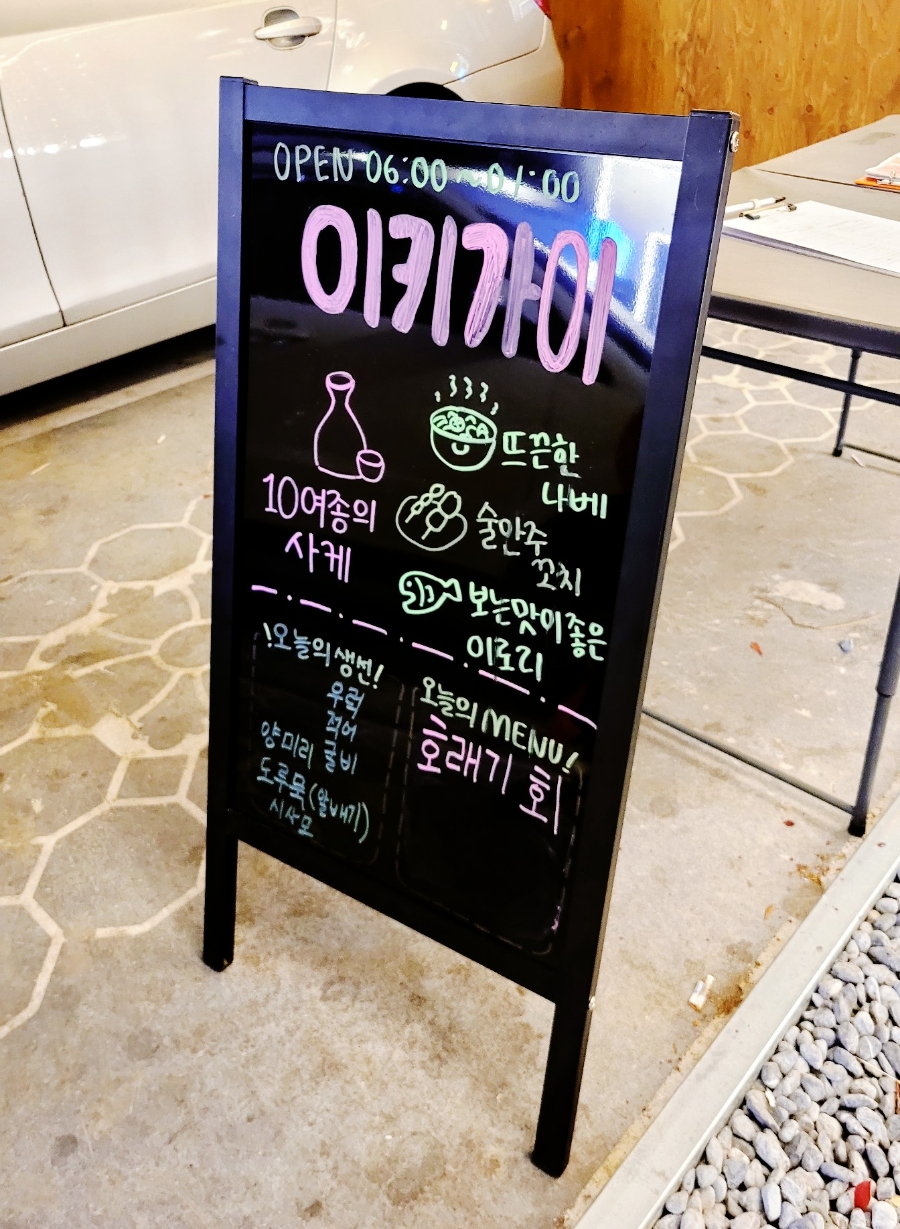 OPEN 06:00 ~ 01:00
이키가이
10여종의
사케
뜨끈한
나베
술안주
꼬치
보는맛이좋은
이로리
!오늘의 생선!
우럭
적어
양미리 굴비
도루묵(알배기)
시샤모
오늘의 MENU!
호래기 회